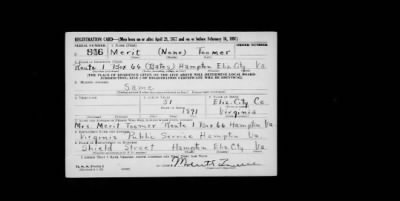 REGISTRATION CARD—(Men born on or after April 28, 1877 and on or before February 16, 1897)
SERIAL NUMBER 1. NAME (Print) ORDER NUMBER
U 936 Merit (None) Toomer
(First) (Middle) (Last)
2. PLACE OF RESIDENCE (Print)
Route 1 Box 66 (Bates) Hampton Eliz. City Va
(THE PLACE OF RESIDENCE GIVEN ON THE LINE ABOVE WILL DETERMINE LOCAL BOARD
JURISDICTION; LINE 2 OF REGISTRATION CERTIFICATE WILL BE IDENTICAL)
3. MAILING ADDRESS
Same
4. TELEPHONE 5. AGE IN YEARS 6. PLACE OF BIRTH
51 Eliz. City Co
DATE OF BIRTH
1891 Virginia
7. NAME AND ADDRESS OF PERSON WHO WILL ALWAYS KNOW YOUR ADDRESS
Mrs. Merit Toomer Route 1 Box 66 Hampton Va
8. EMPLOYER'S NAME AND ADDRESS
Virginia Public Service Hampton Va.
9. PLACE OF EMPLOYMENT OR BUSINESS
Shield Street Hampton Eliz. City Va
I AFFIRM THAT I HAVE VERIFIED ABOVE ANSWERS AND THAT THEY ARE TRUE.